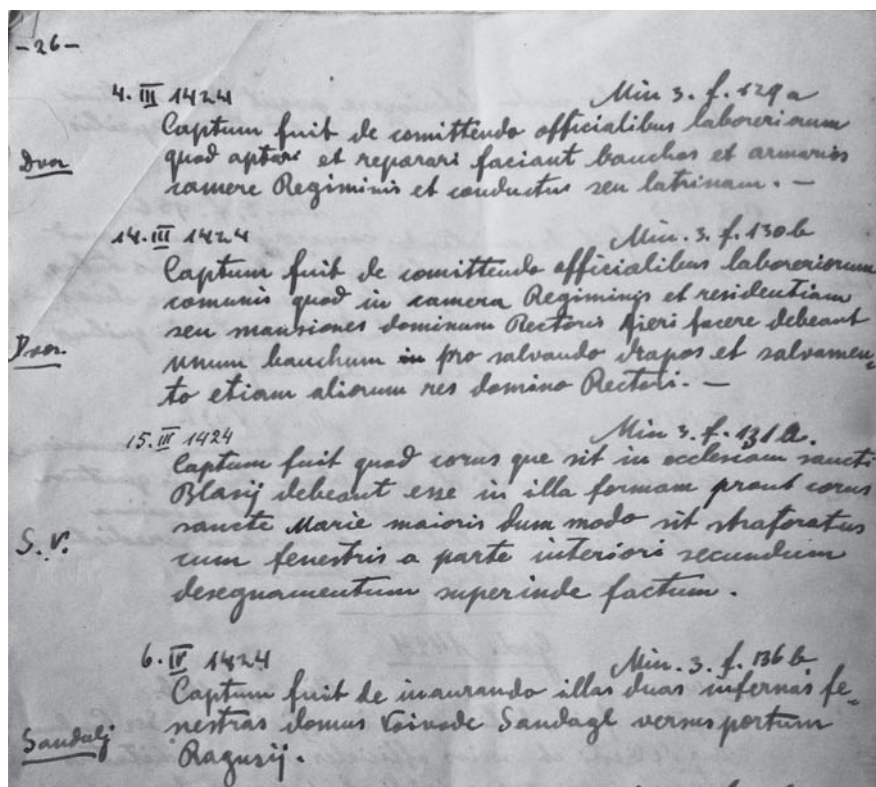 -26-
4. III 1424 Min 3. f. 129 a
Captum fuit de comittendo officialibus laboreriorum
Dvor quod aptari et reparari faciant banchos et armarios
camere Regiminis et conductus seu latrinam. -
14. III 1424 Min. 3. f. 130 b
Captum fuit de comittendo officialibus laboreriorum
comunis quod in camera Regiminis et residentiam
seu mansiones dominum Rectoris fieri facere debeant
Dvor. unum banchum in pro salvando drapos et salvamen-
to etiam aliorum res domino Rectori. -
15. III 1424 Min 3. f. 131 a.
Captum fuit quod corus que sit in ecclesiam sancti
Blasij debeant esse in illa formam prout corus
S. V. sancte Marie maioris dum modo sit straforatus
cum fenestris a parte interiori secundum
desegnamentum superinde factum.
6. IV 1424 Min. 3. f. 136 b
Captum fuit de inaurando illas duas infernas fe-
Sandalj nestras domus Voivode Sandagl versus portum
Ragusij.